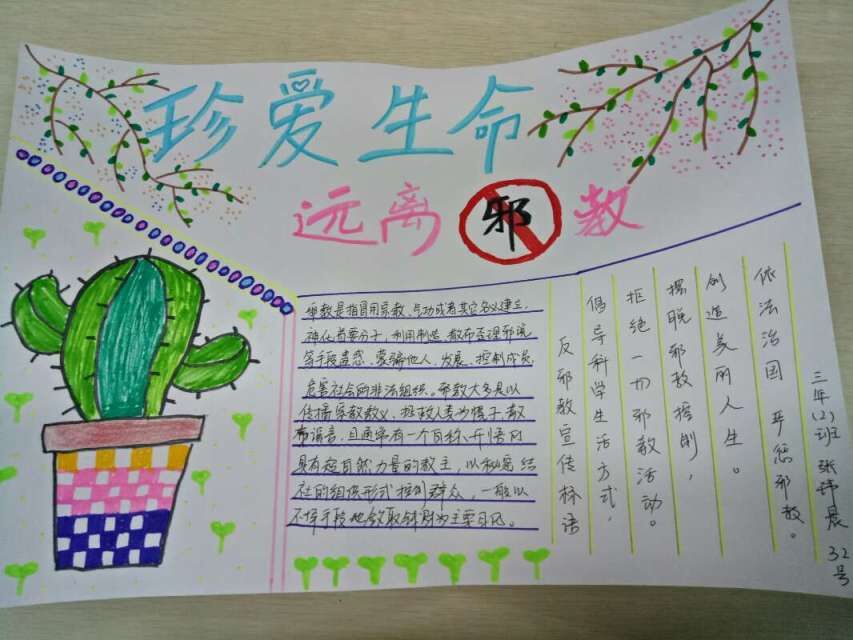 珍爱生命
远离邪教
邪教是指冒用宗教、气功或者其它名义建立、
神化首要分子,利用制造、散布歪理邪说
等手段蛊惑、蒙骗他人,发展、控制成员,
危害社会的非法组织。邪教大多是以
传播宗教教义、拯救人类为幌子,散
布谣言,且通常有一个自称开悟的
具有超自然力量的教主,以秘密结
社的组织形式控制群众,一般以
不择手段地敛取钱财为主要目的。
反邪教宣传标语
倡导科学生活方式,
拒绝一切邪教活动。
摆脱邪教控制,
创造美丽人生。
依法治国 严惩邪教。
三年(2)班 张玮晨 32号